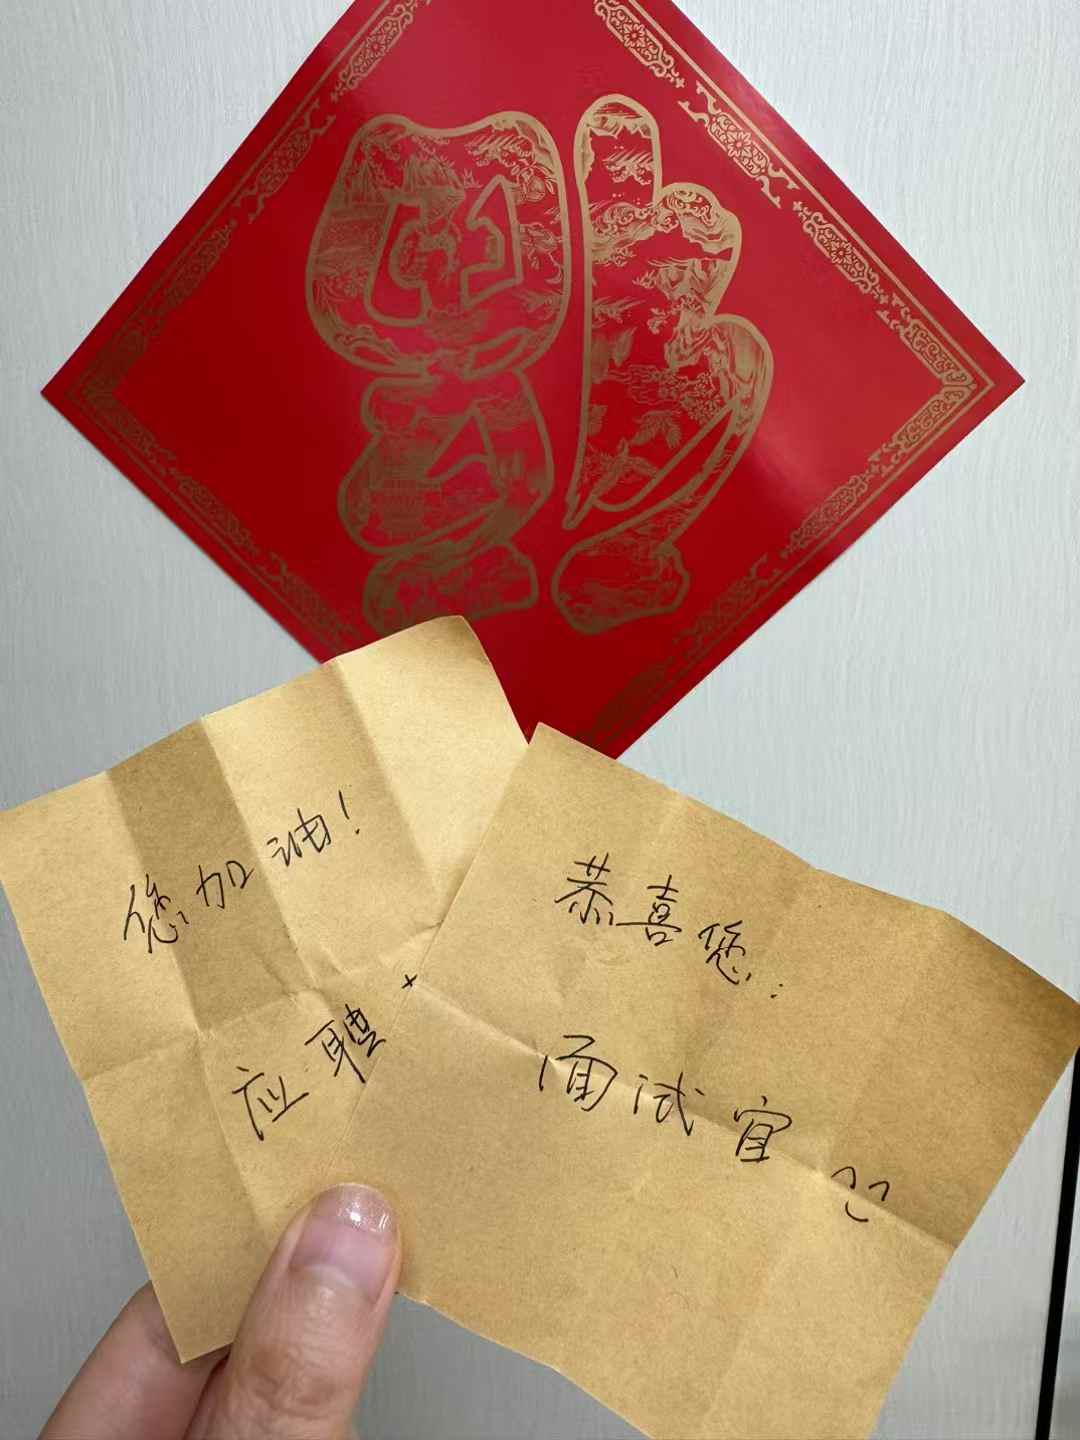 福
您加油!
应聘
恭喜您:
面试官